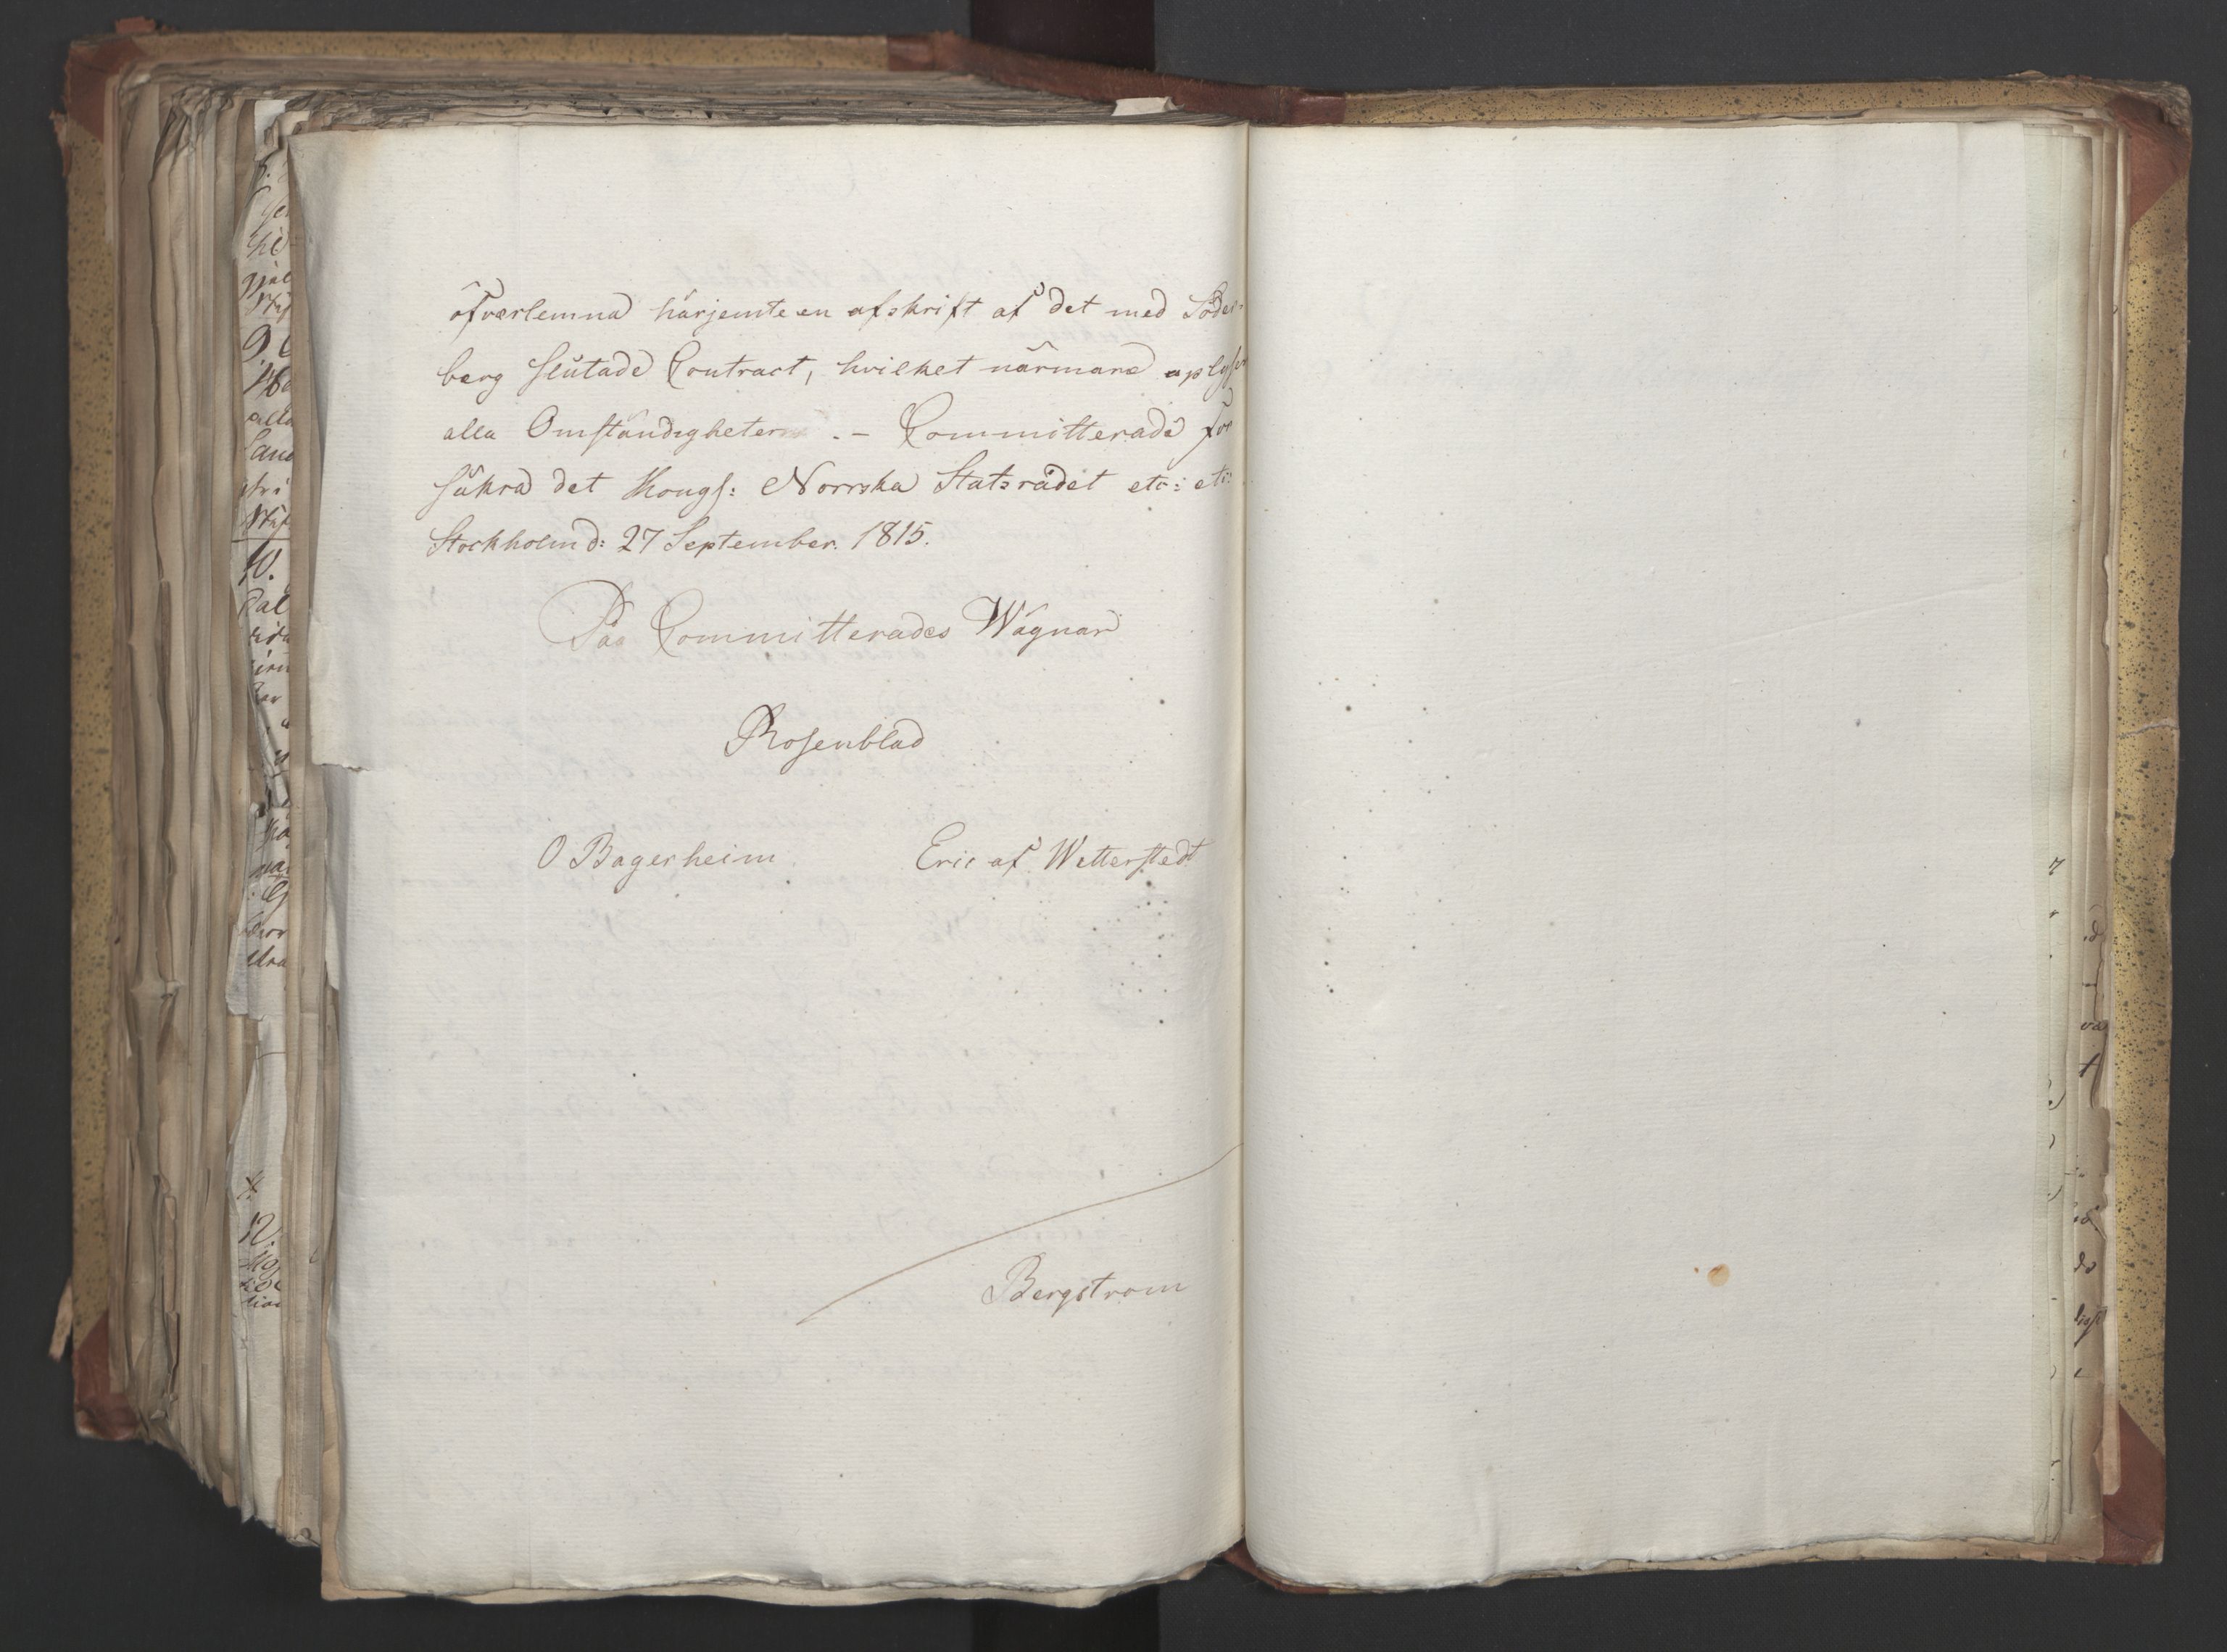 öfverlemna härjemte en afskrift af det med Söder-
berg slutade Contract, hvilket närmare oplyser
alla Omständigheter. - Committerade för
säkra det Kongl: Norrska Statsrådet etc: etc:
Stockholm d: 27 September. 1815.
Paa Committerades Wägnar
Rosenblad
O Bagerheim Eric af Wetterstedt
Bergstrom
9.
10.
12.